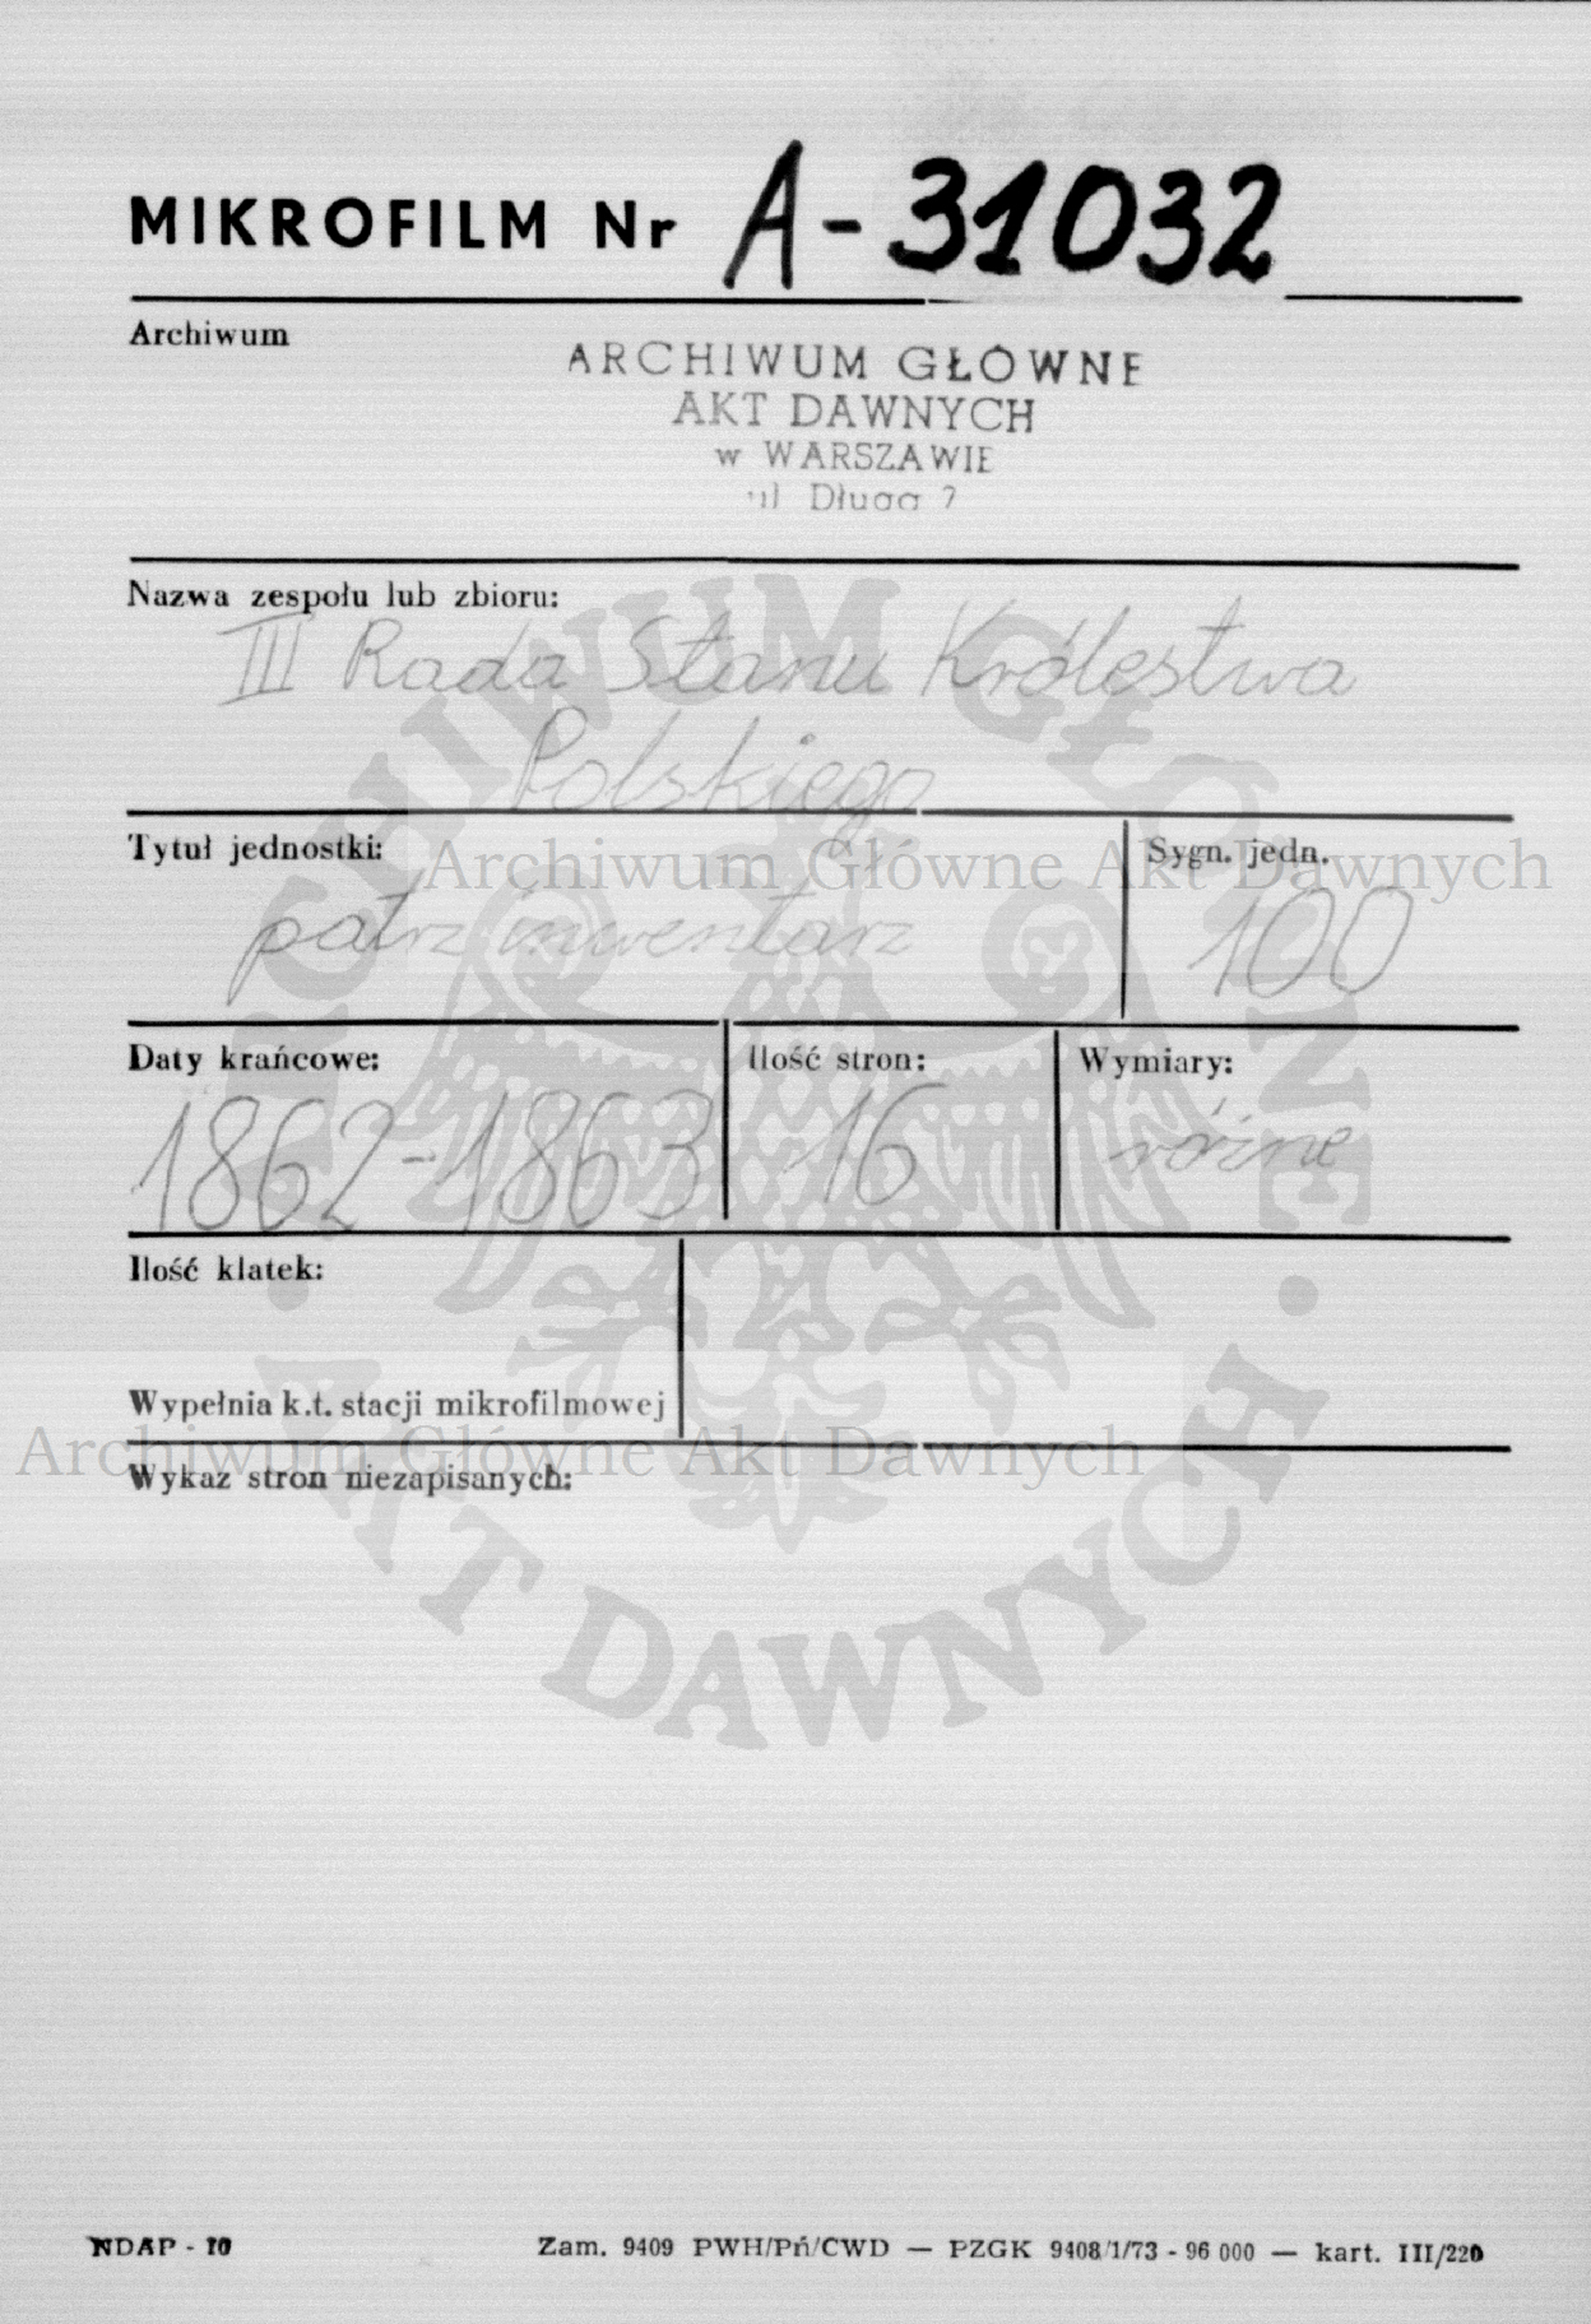 MIKROFILM Nr A-31032
Archiwum
ARCHIWUM GŁÓWNE
AKT DAWNYCH
w WARSZAWIE
ul Długa 7
Nazwa zespołu lub zbioru:
III Rada Stanu Królestwa
Polskiego
Tytuł jednostki: Sygn. jedn.
Archiwum Główne Akt Dawnych
patrz inwentarz 100
Daty krańcowe: Ilość stron: Wymiary:
1862-1863 16 różne
Ilość klatek:
Wypełnia k.t. stacji mikrofilmowej
Archiwum Główne Akt Dawnych
Wykaz stron niezapisanych:
ARCHIWUM GŁÓWNE · AKT DAWNYCH ·
NDAP - 10 Zam. 9409 PWH/Pń/CWD — PZGK 9408/1/73 - 96 000 — kart. III/220